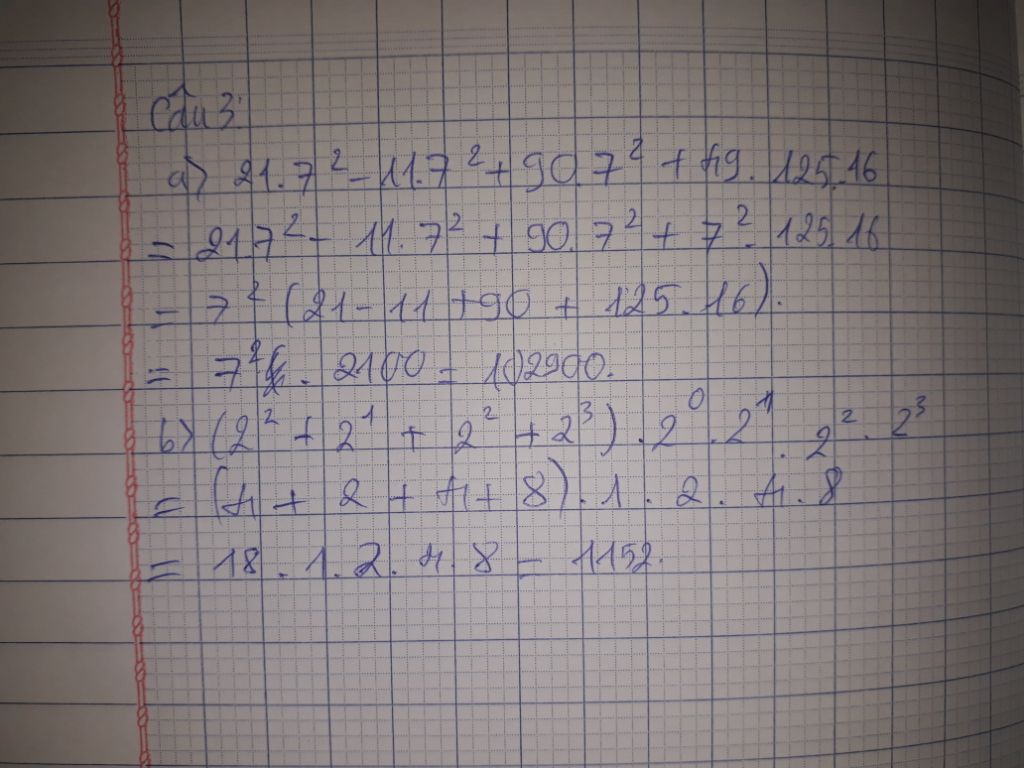 Câu 3:
a) 21.7² - 11.7² + 90.7² + 49.125.16
= 21.7² - 11.7² + 90.7² + 7².125.16
= 7² (21 - 11 + 90 + 125.16).
= 7² . 2100 = 102900.
b) (2² + 2¹ + 2² + 2³) . 2⁰ . 2¹ . 2² . 2³
= (4 + 2 + 4 + 8) . 1 . 2 . 4 . 8
= 18 . 1 . 2 . 4 . 8 = 1152.